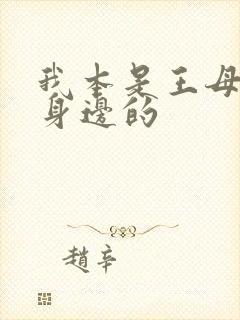 我本是王母
身邊的
趙辛